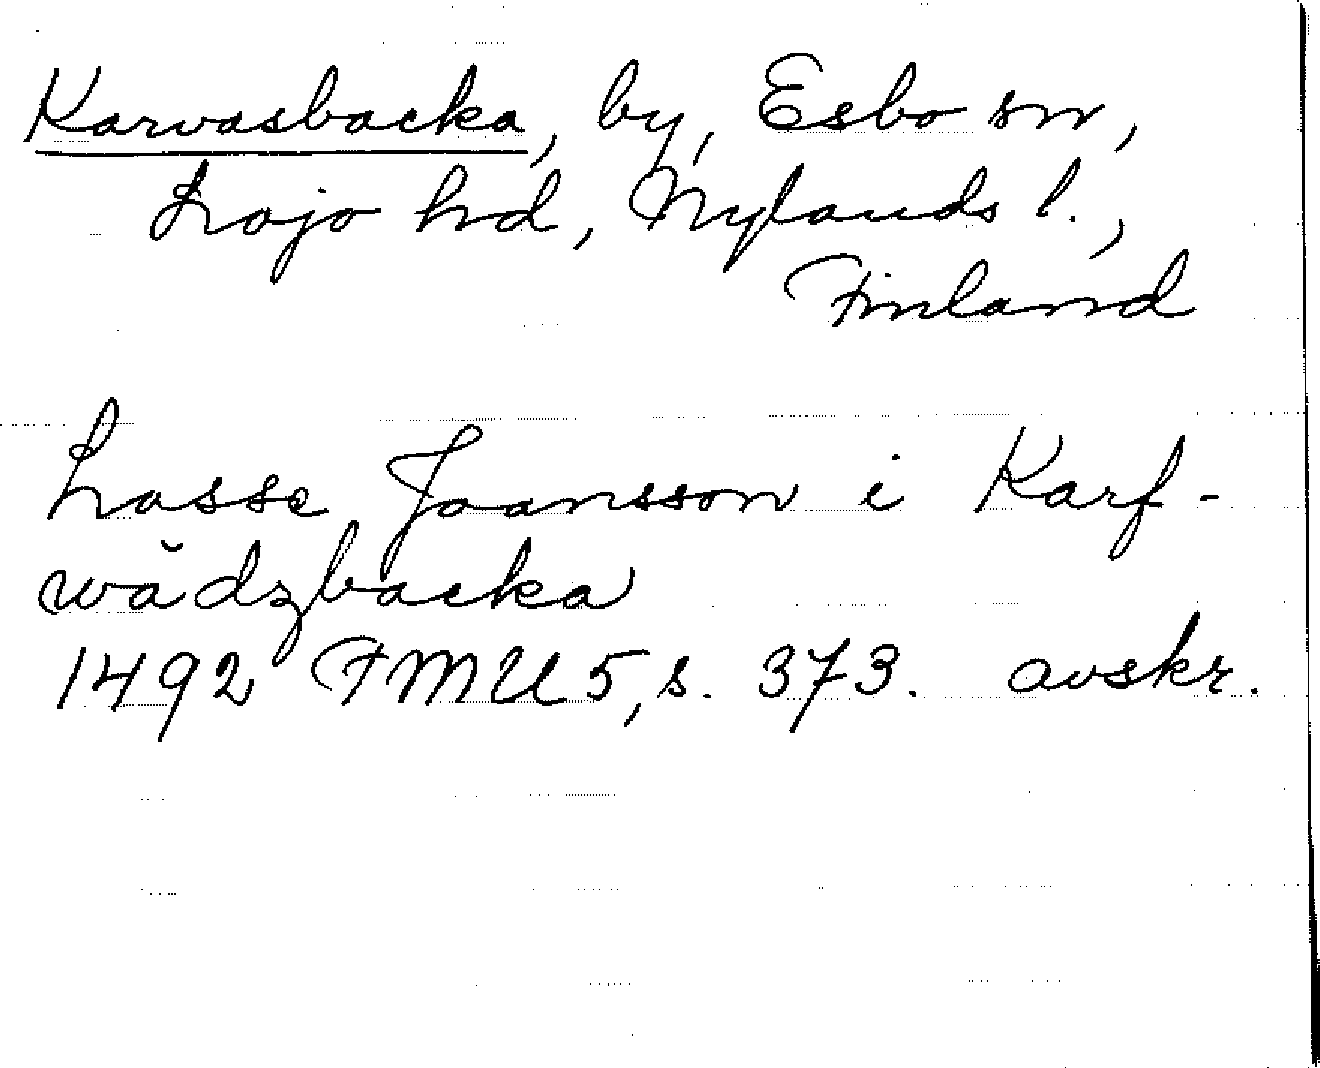 Karvasbacka, by, Esbo sn,
Lojo hd, Nylands l.,
Finland
Lasse Joansson i Karf-
wădzbacka
1492 FMU 5, s. 373. avskr.